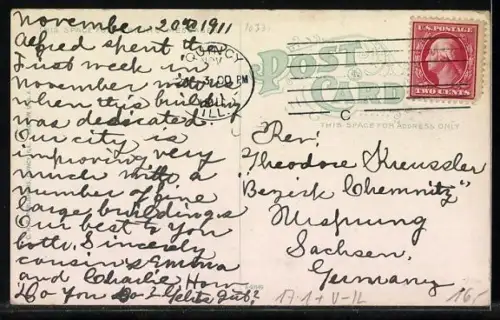 November 20th 1911
Alfred spent the
first week in
November with us
when this building
was dedicated.
Our city is
improving very
much with a
number of fine
large buildings
Our best to you
both. Sincerely
cousins Emma
and Charlie How
do you
QUINCY
NOV
3-PM
ILL.
POST
CARD
THIS SPACE FOR ADDRESS ONLY
U.S. POSTAGE
TWO CENTS
C
Rev.
Theodore Kreussler
"Bezirk Chemnitz"
Ursprung
Sachsen,
Germany